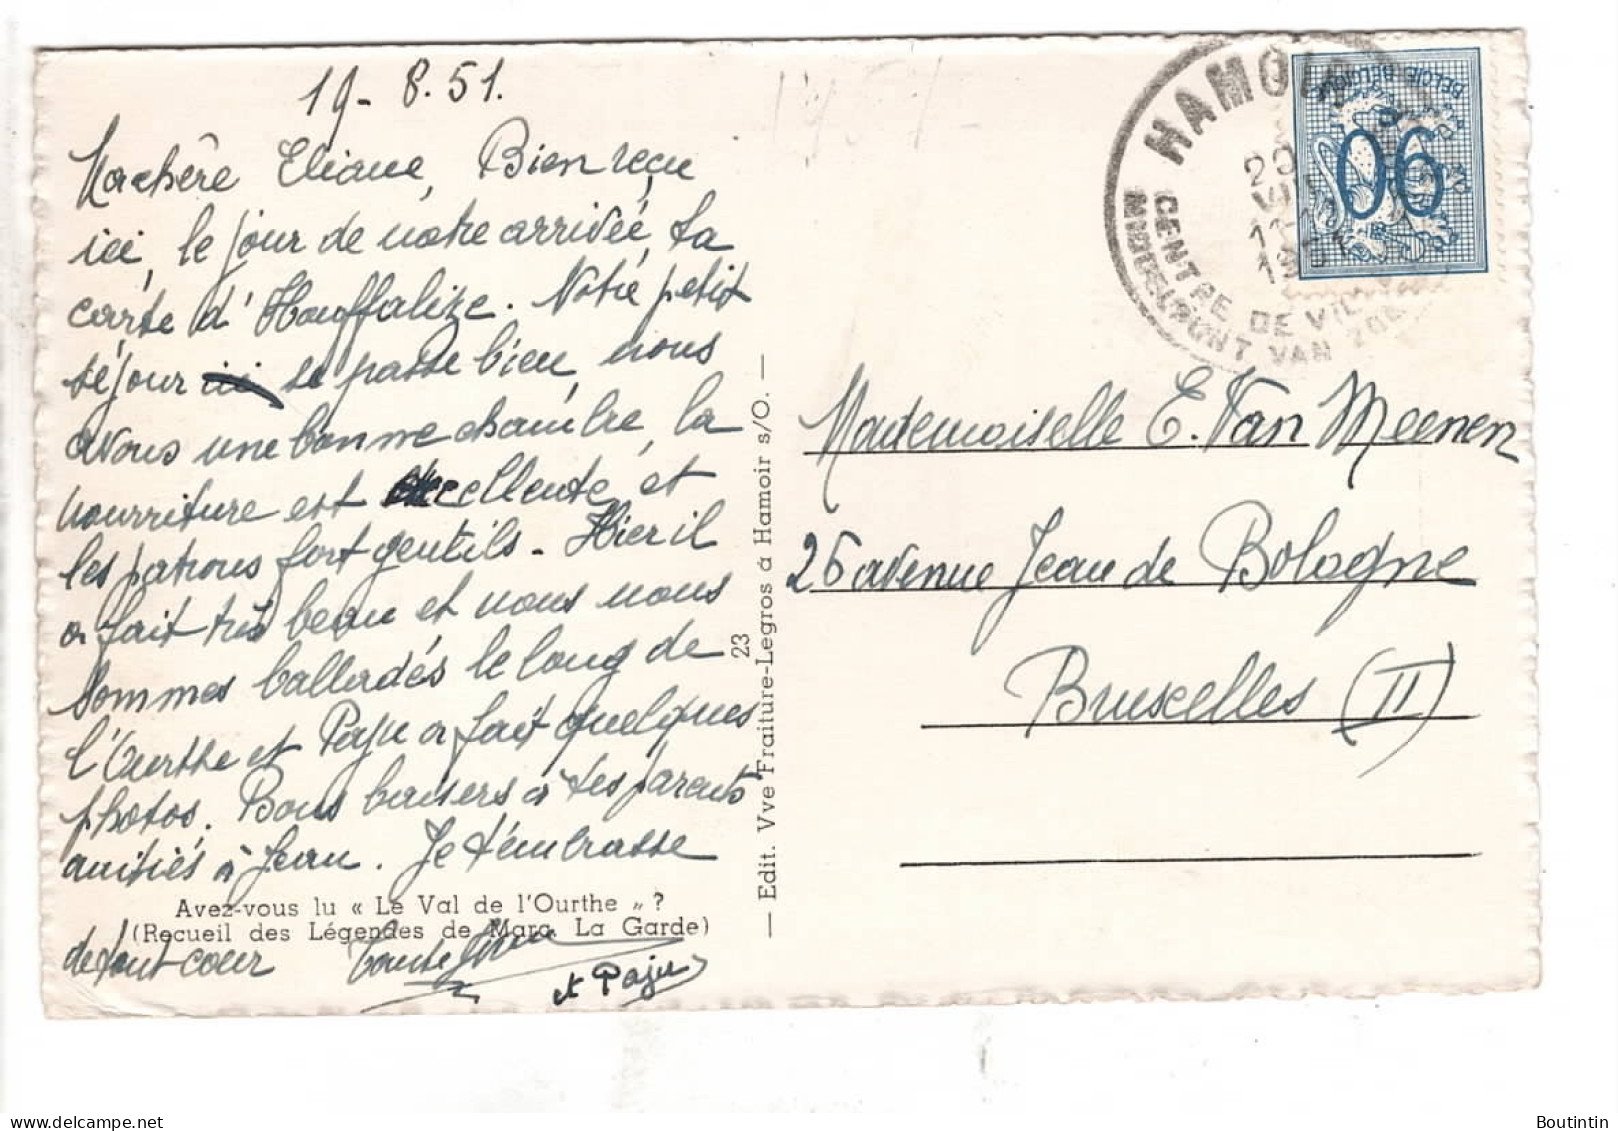 19-8.51.
Machère Eliane, Bien reçu
ici, le jour de notre arrivée, ta
carte d'Houffalize. Notre petit
séjour ici se passe bien, nous
avons une bonne chambre, la
nourriture est excellente, et
les patrons fort gentils. Hier il
a fait très beau et nous nous
sommes balladés le long de
l'Ourthe et Papu a fait quelques
photos. Bons baisers à tes parents
amitiés à Jean. Je t'embrasse
Avez-vous lu « Le Val de l'Ourthe » ?
(Recueil des Légendes de Marc La Garde)
de tout cœur
et Papu
23
— Edit. Vve Fraiture-Legros à Hamoir s/O. —
HAMOIR
20
VIII
1951
CENTRE DE VIL
MIDDELPUNT VAN ZOE
BELGIE-BELGIQUE
90
Mademoiselle E. Van Meenen
26 avenue Jean de Bologne
Bruxelles (II)
delcampe.net
Boutintin